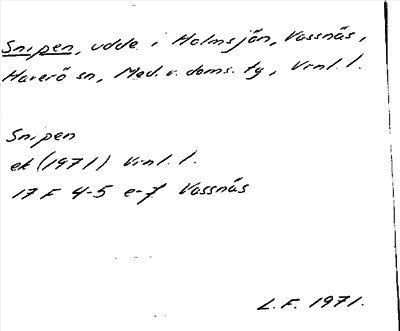 Snipen, udde i Holmsjön, Vassnäs,
Haverö sn, Med. v. doms. tg, Vrnl. l.
Snipen
ek (1971) Vrnl. l.
17 F 4-5 e-f Vassnäs
L.F. 1971.